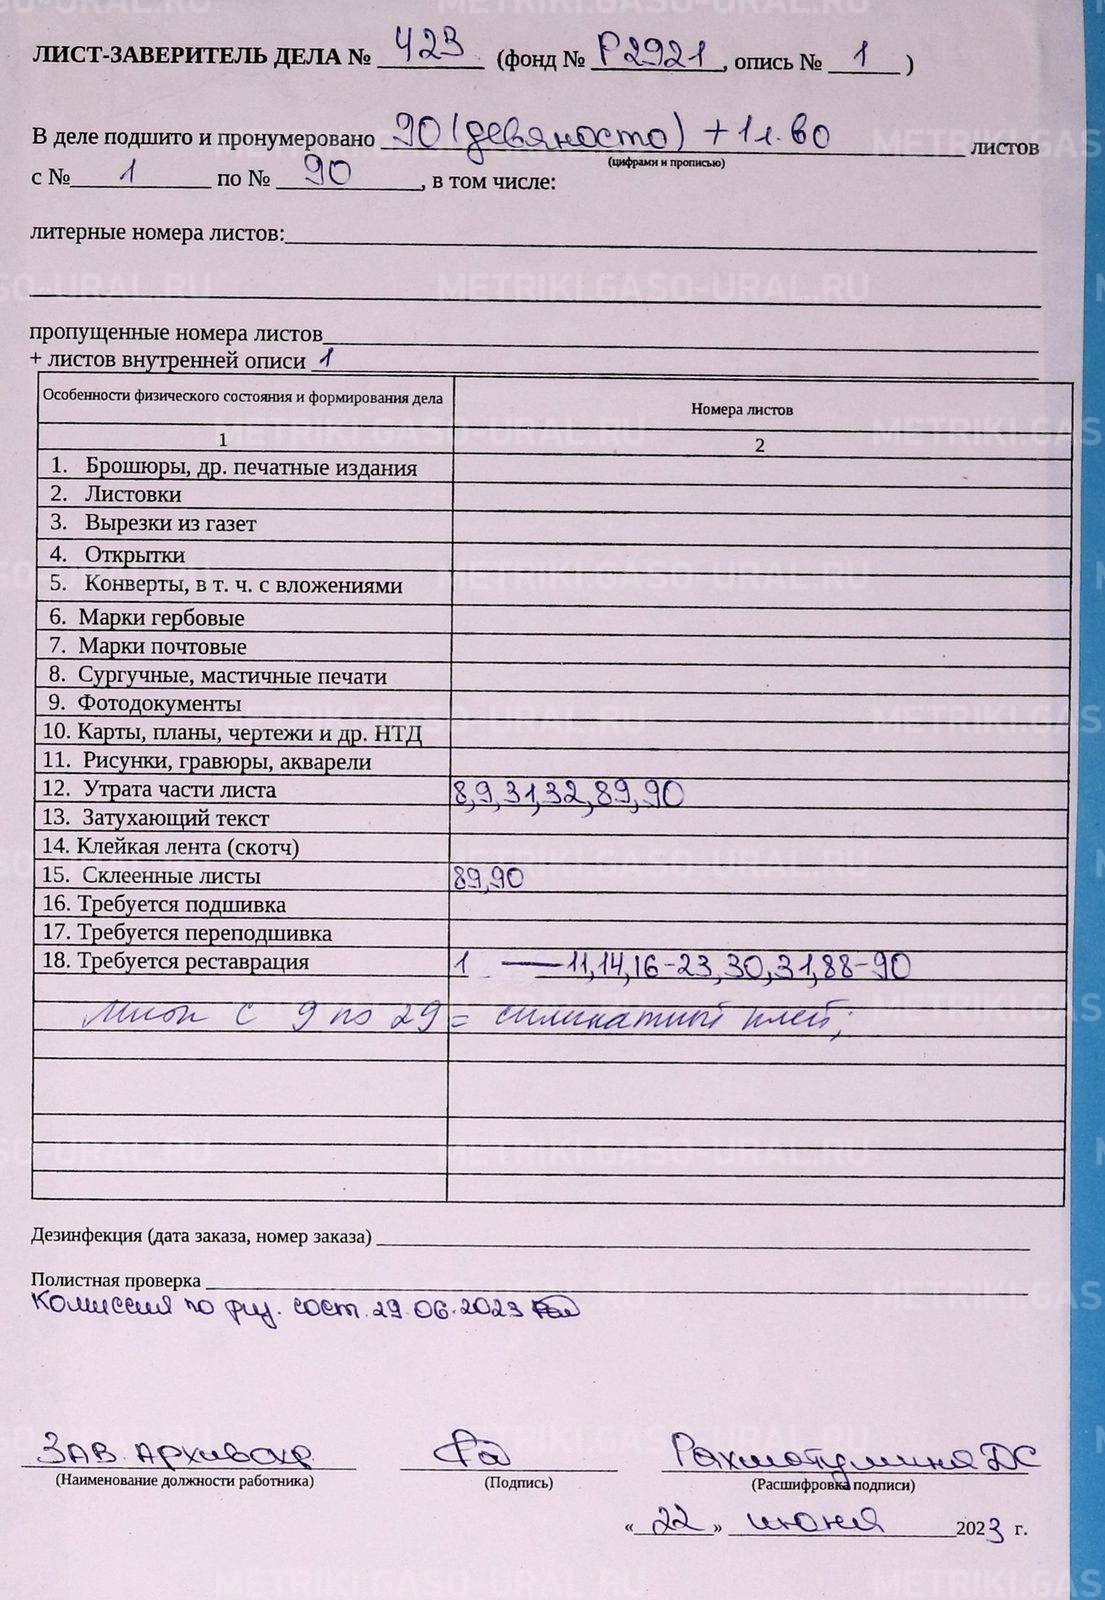 ЛИСТ-ЗАВЕРИТЕЛЬ ДЕЛА № 423 (фонд № Р2921, опись № 1 )
В деле подшито и пронумеровано 90 (девяносто) + 1 л. во листов
(цифрами и прописью)
с № 1 по № 90, в том числе:
литерные номера листов:
пропущенные номера листов
+ листов внутренней описи 1
Особенности физического состояния и формирования дела Номера листов
1 2
1. Брошюры, др. печатные издания
2. Листовки
3. Вырезки из газет
4. Открытки
5. Конверты, в т. ч. с вложениями
6. Марки гербовые
7. Марки почтовые
8. Сургучные, мастичные печати
9. Фотодокументы
10. Карты, планы, чертежи и др. НТД
11. Рисунки, гравюры, акварели
12. Утрата части листа 8,9,31,32,89,90
13. Затухающий текст
14. Клейкая лента (скотч)
15. Склеенные листы 89,90
16. Требуется подшивка
17. Требуется переподшивка
18. Требуется реставрация 1 — 11,14,16-23,30,31,88-90
с 9 по 29 = силикатный клей;
Дезинфекция (дата заказа, номер заказа)
Полистная проверка
Комиссия по физ. сост. 29.06.2023
Зав. Архивохр.
(Наименование должности работника) (Подпись) (Расшифровка подписи)
«22» июня 2023 г.
METRIKI.GASO-URAL.RU